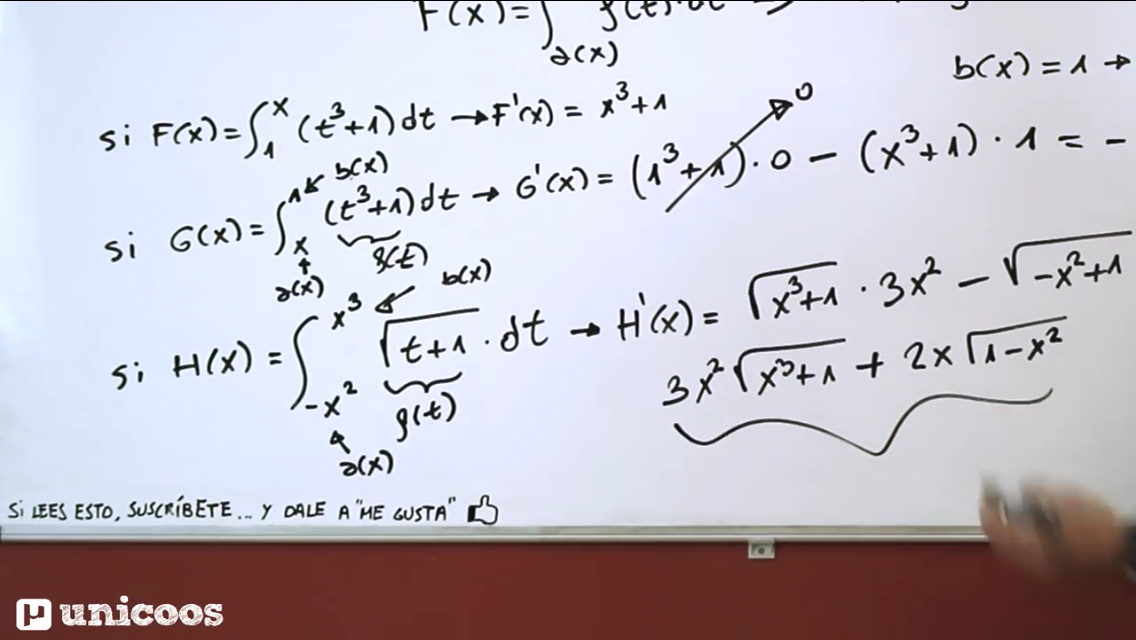 F(x) = ∫a(x) f(t)·dt
b(x) = 1 →
si F(x) = ∫₁ˣ (t³+1) dt → F'(x) = x³+1
si G(x) = ∫ₓ¹ (t³+1) dt → G'(x) = (1³+1)·0 − (x³+1)·1 = −
0
b(x)
a(x)
f(t)
si H(x) = ∫₋ₓ²ˣ³ √(t+1) · dt → H'(x) = √(x³+1) · 3x² − √(−x²+1)
b(x)
a(x)
f(t)
3x² √(x³+1) + 2x √(1−x²)
SI LEES ESTO, SUSCRÍBETE... Y DALE A "ME GUSTA"
μ unicoos